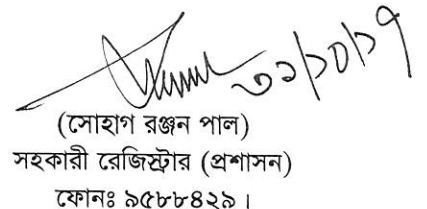 ৩১/১০/১৭
(সোহাগ রঞ্জন পাল)
সহকারী রেজিস্ট্রার (প্রশাসন)
ফোনঃ ৯৫৮৮৪২৯।